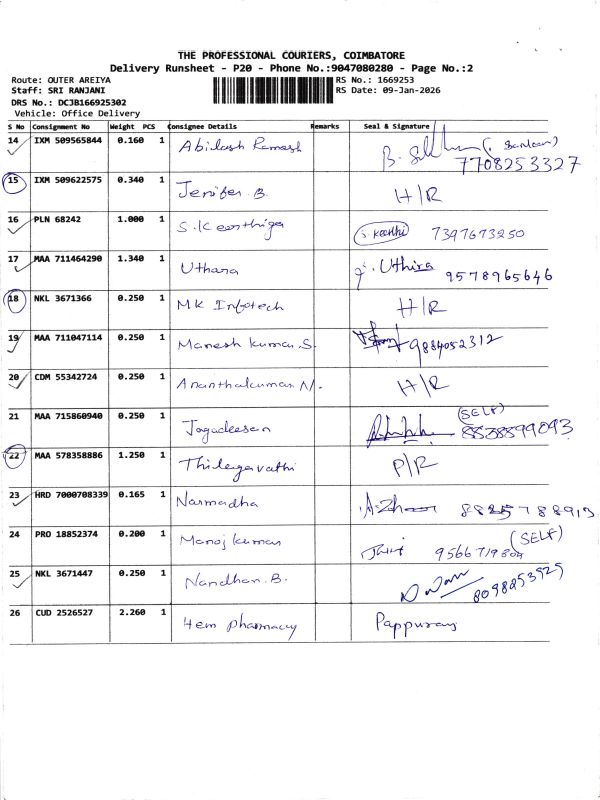 THE PROFESSIONAL COURIERS, COIMBATORE
Delivery Runsheet - P20 - Phone No.:9047080280 - Page No.:2
Route: OUTER AREIYA RS No.: 1669253
Staff: SRI RANJANI RS Date: 09-Jan-2026
DRS No.: DCJB166925302
Vehicle: Office Delivery
S No Consignment No Weight PCS Consignee Details Remarks Seal & Signature
14 IXM 509565844 0.160 1 Abilash Ramesh 7708253327
15 IXM 509622575 0.340 1 Jenifer B. H/R
16 PLN 68242 1.000 1 S. Keerthiga S. Keerthi 7397673250
17 MAA 711464290 1.340 1 Uthara Uthira 9578965646
18 NKL 3671366 0.250 1 MK Infotech H/R
19 MAA 711047114 0.250 1 Manesh Kumar. S. 9884052312
20 CDM 55342724 0.250 1 Ananthakumar N. H/R
21 MAA 715860940 0.250 1 Jagadeesan (SELF) 8838899093
22 MAA 578358886 1.250 1 Thilagavathi P/R
23 HRD 7000708339 0.165 1 Narmadha
24 PRO 18852374 0.200 1 Manoj Kumar (SELF)
25 NKL 3671447 0.250 1 Nandhan. B. 8098253525
26 CUD 2526527 2.260 1 4em pharmacy Pappuraj